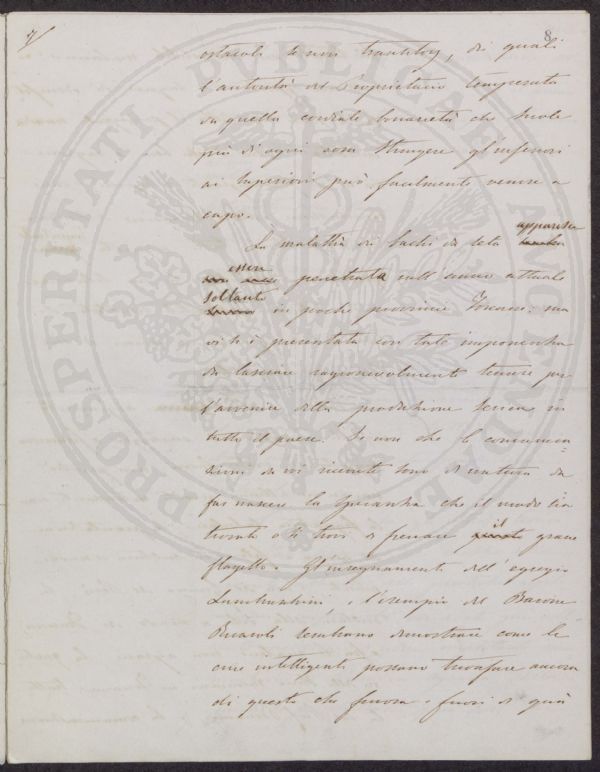 7/
8
ostacoli se non transitorj, dei quali
l'autorità del Proprietario temperata
da quella cordiale bonarietà che suole
più di ogni cosa stringere gl'inferiori
ai superiori può facilmente venire a
capo.
La malattia dei bachi da seta apparisce
essere penetrata nell'anno attuale
soltanto in poche provincie Toscane: ma
vi si è presentata con tale imponenza
da lasciare ragionevolmente temere per
l'avvenire della produzione serica in
tutto il paese. Se non che le comunica=
zioni da voi ricevute sono di natura da
far nascere la speranza che il modo sia
trovato o si trovi di frenare il grave
flagello. Gl'insegnamenti dell'egregio
Lambruschini, e l'esempio del Barone
Ricasoli sembrano dimostrare come le
cure intelligenti possano trionfare ancora
di questo che finora, e fuori di quà
PROSPERITATI PUBLICAE AUGENDAE